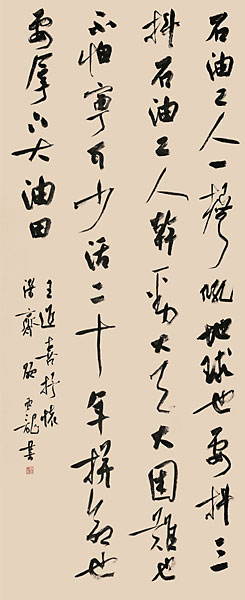 石油工人一聲吼地球也要抖三
抖石油工人幹勁大天大困難也
不怕寧可少活二十年拼命也
要拿下大油田
王進喜抒懷
齋雲龍書